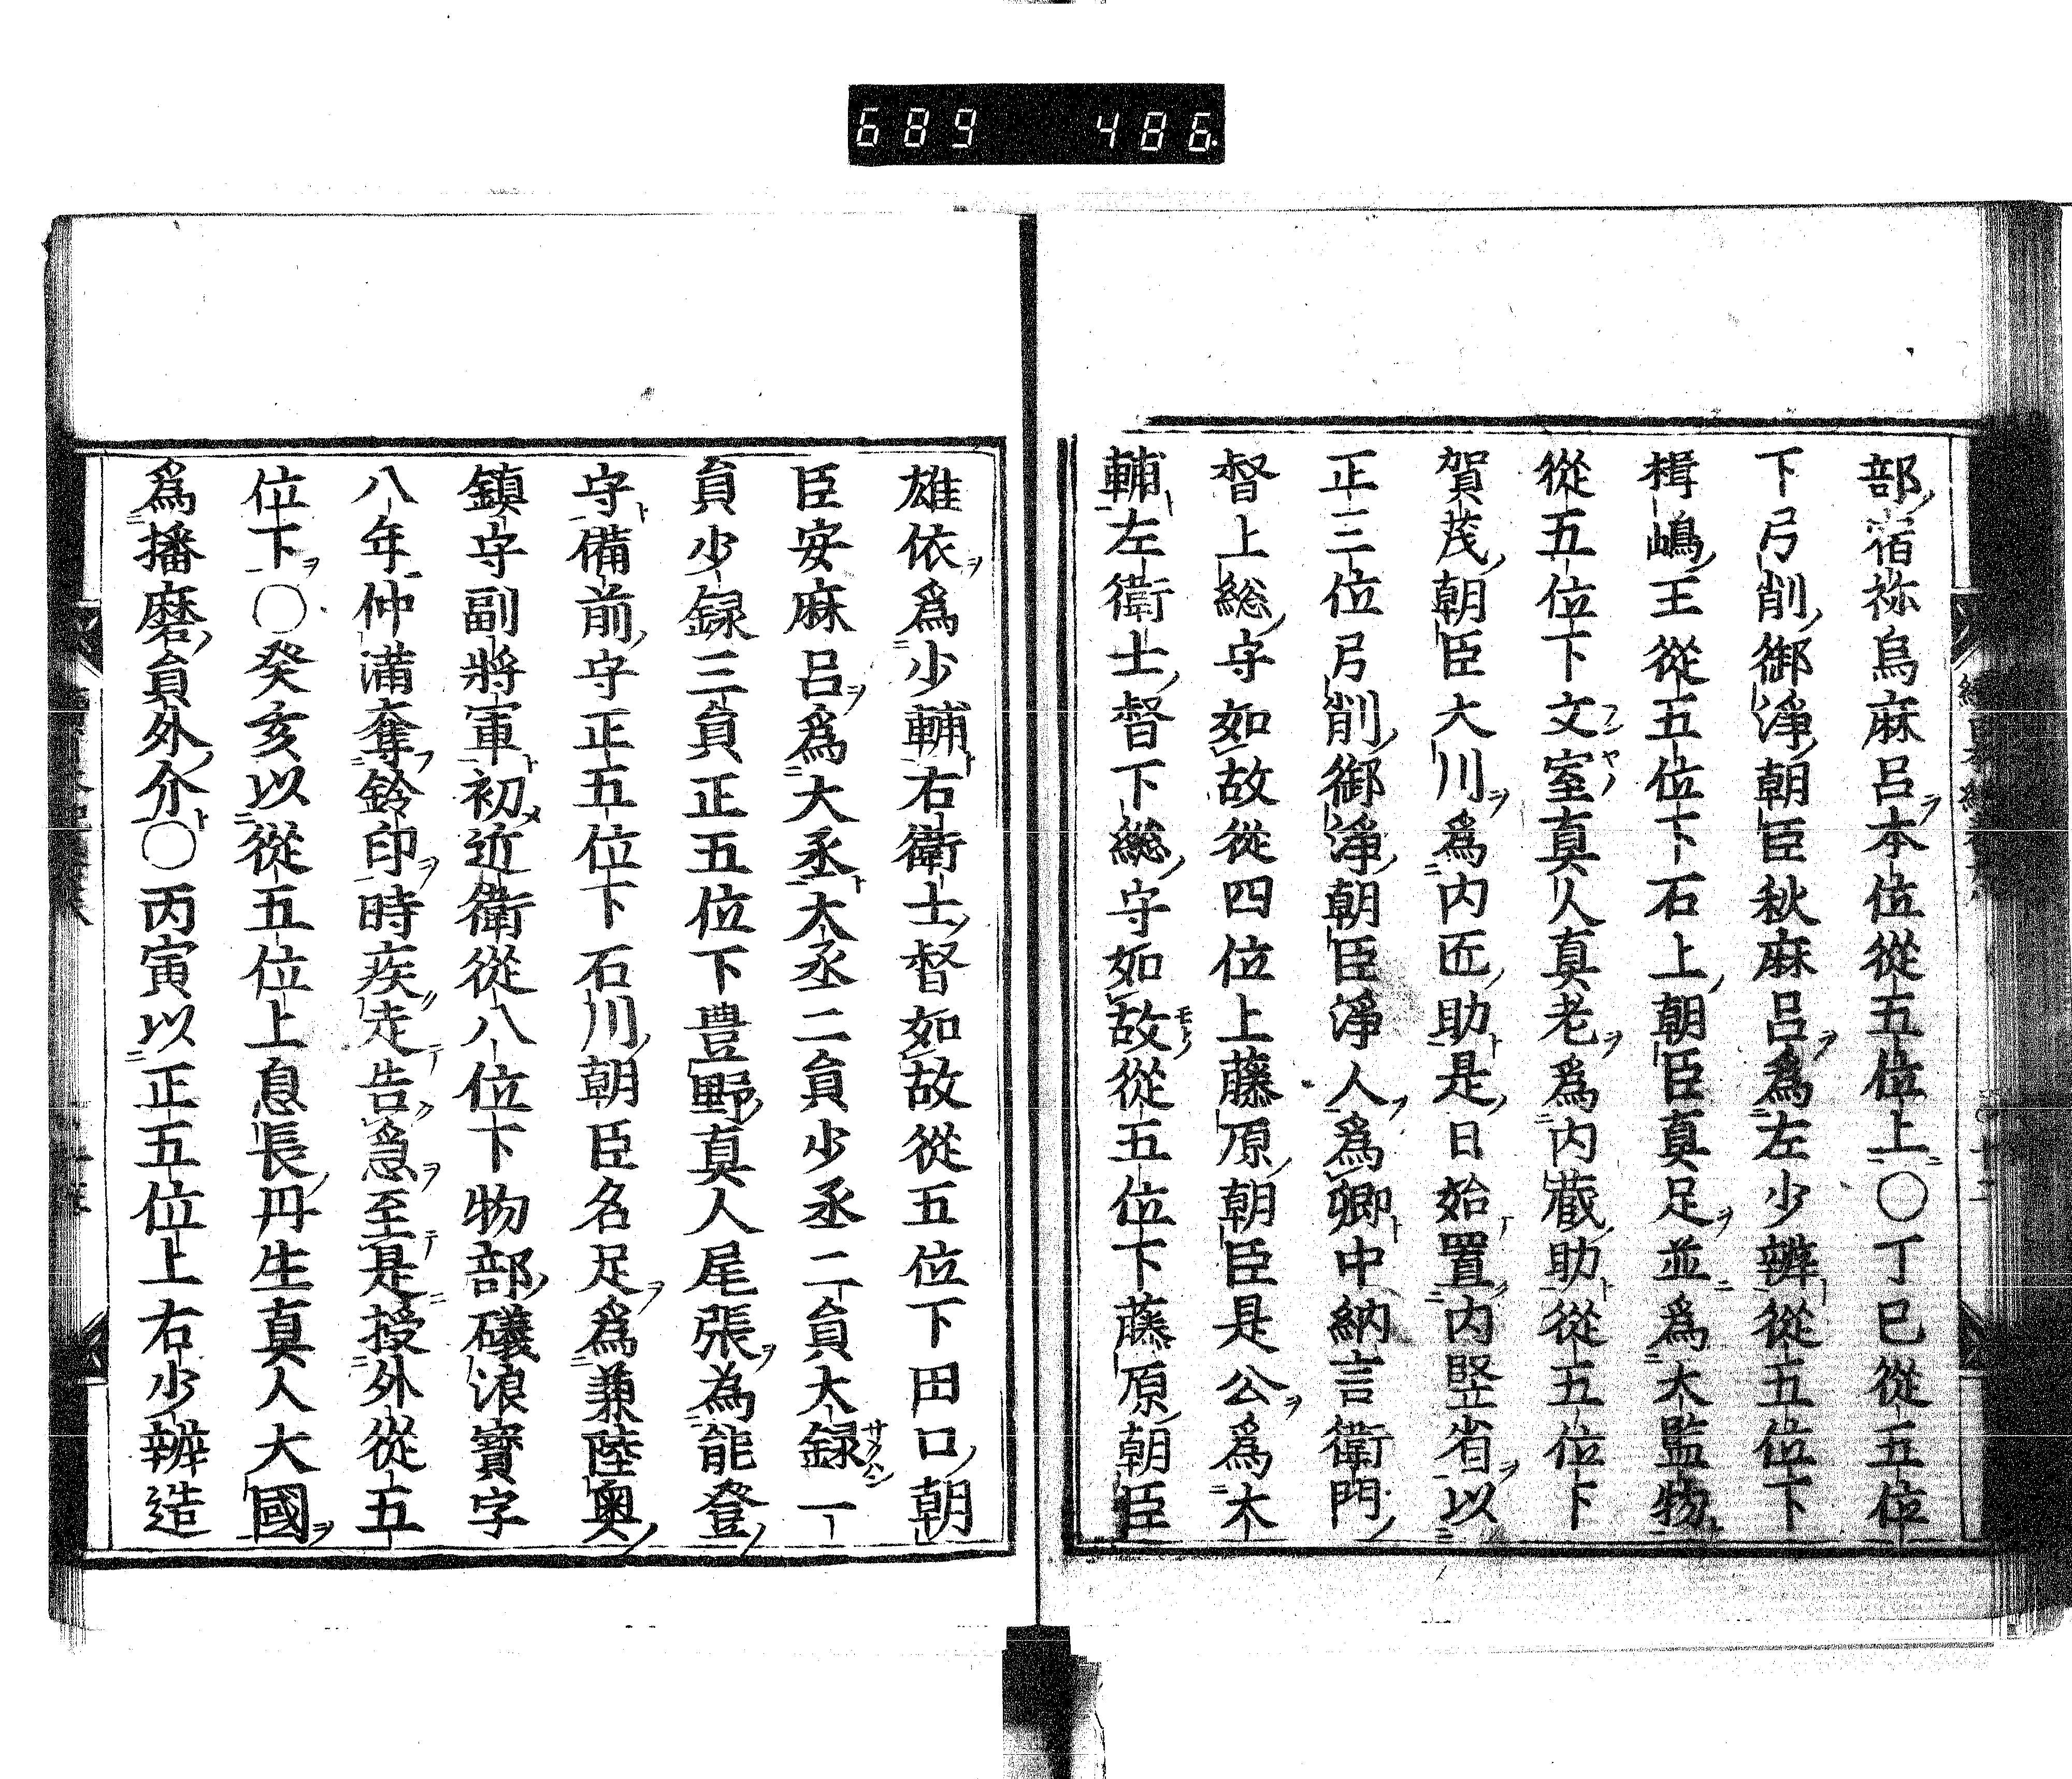 689 486
部宿祢烏麻呂本位從五位上〇丁巳從五位
下弓削御淨朝臣秋麻呂爲左少辨從五位下
楫嶋王從五位下石上朝臣真足並爲大監物
從五位下文室真人真老爲内藏助從五位下
賀茂朝臣大川爲内匠助是日始置内竪省以
正三位弓削御淨朝臣淨人爲卿中納言衛門
督上総守如故從四位上藤原朝臣是公爲大
輔左衛士督下総守如故從五位下藤原朝臣
雄依爲少輔右衛士督如故從五位下田口朝
臣安麻呂爲大丞大丞二負少丞二負大録一
負少録三負正五位下豊野真人尾張為能登
守備前守正五位下石川朝臣名足爲兼陸奥
鎮守副將軍初近衛從八位下物部礒浪寳字
八年仲滿奪鈴印時疾走告急至是授外從五
位下〇癸亥以從五位上息長丹生真人大國
爲播磨負外介〇丙寅以正五位上右少辨造